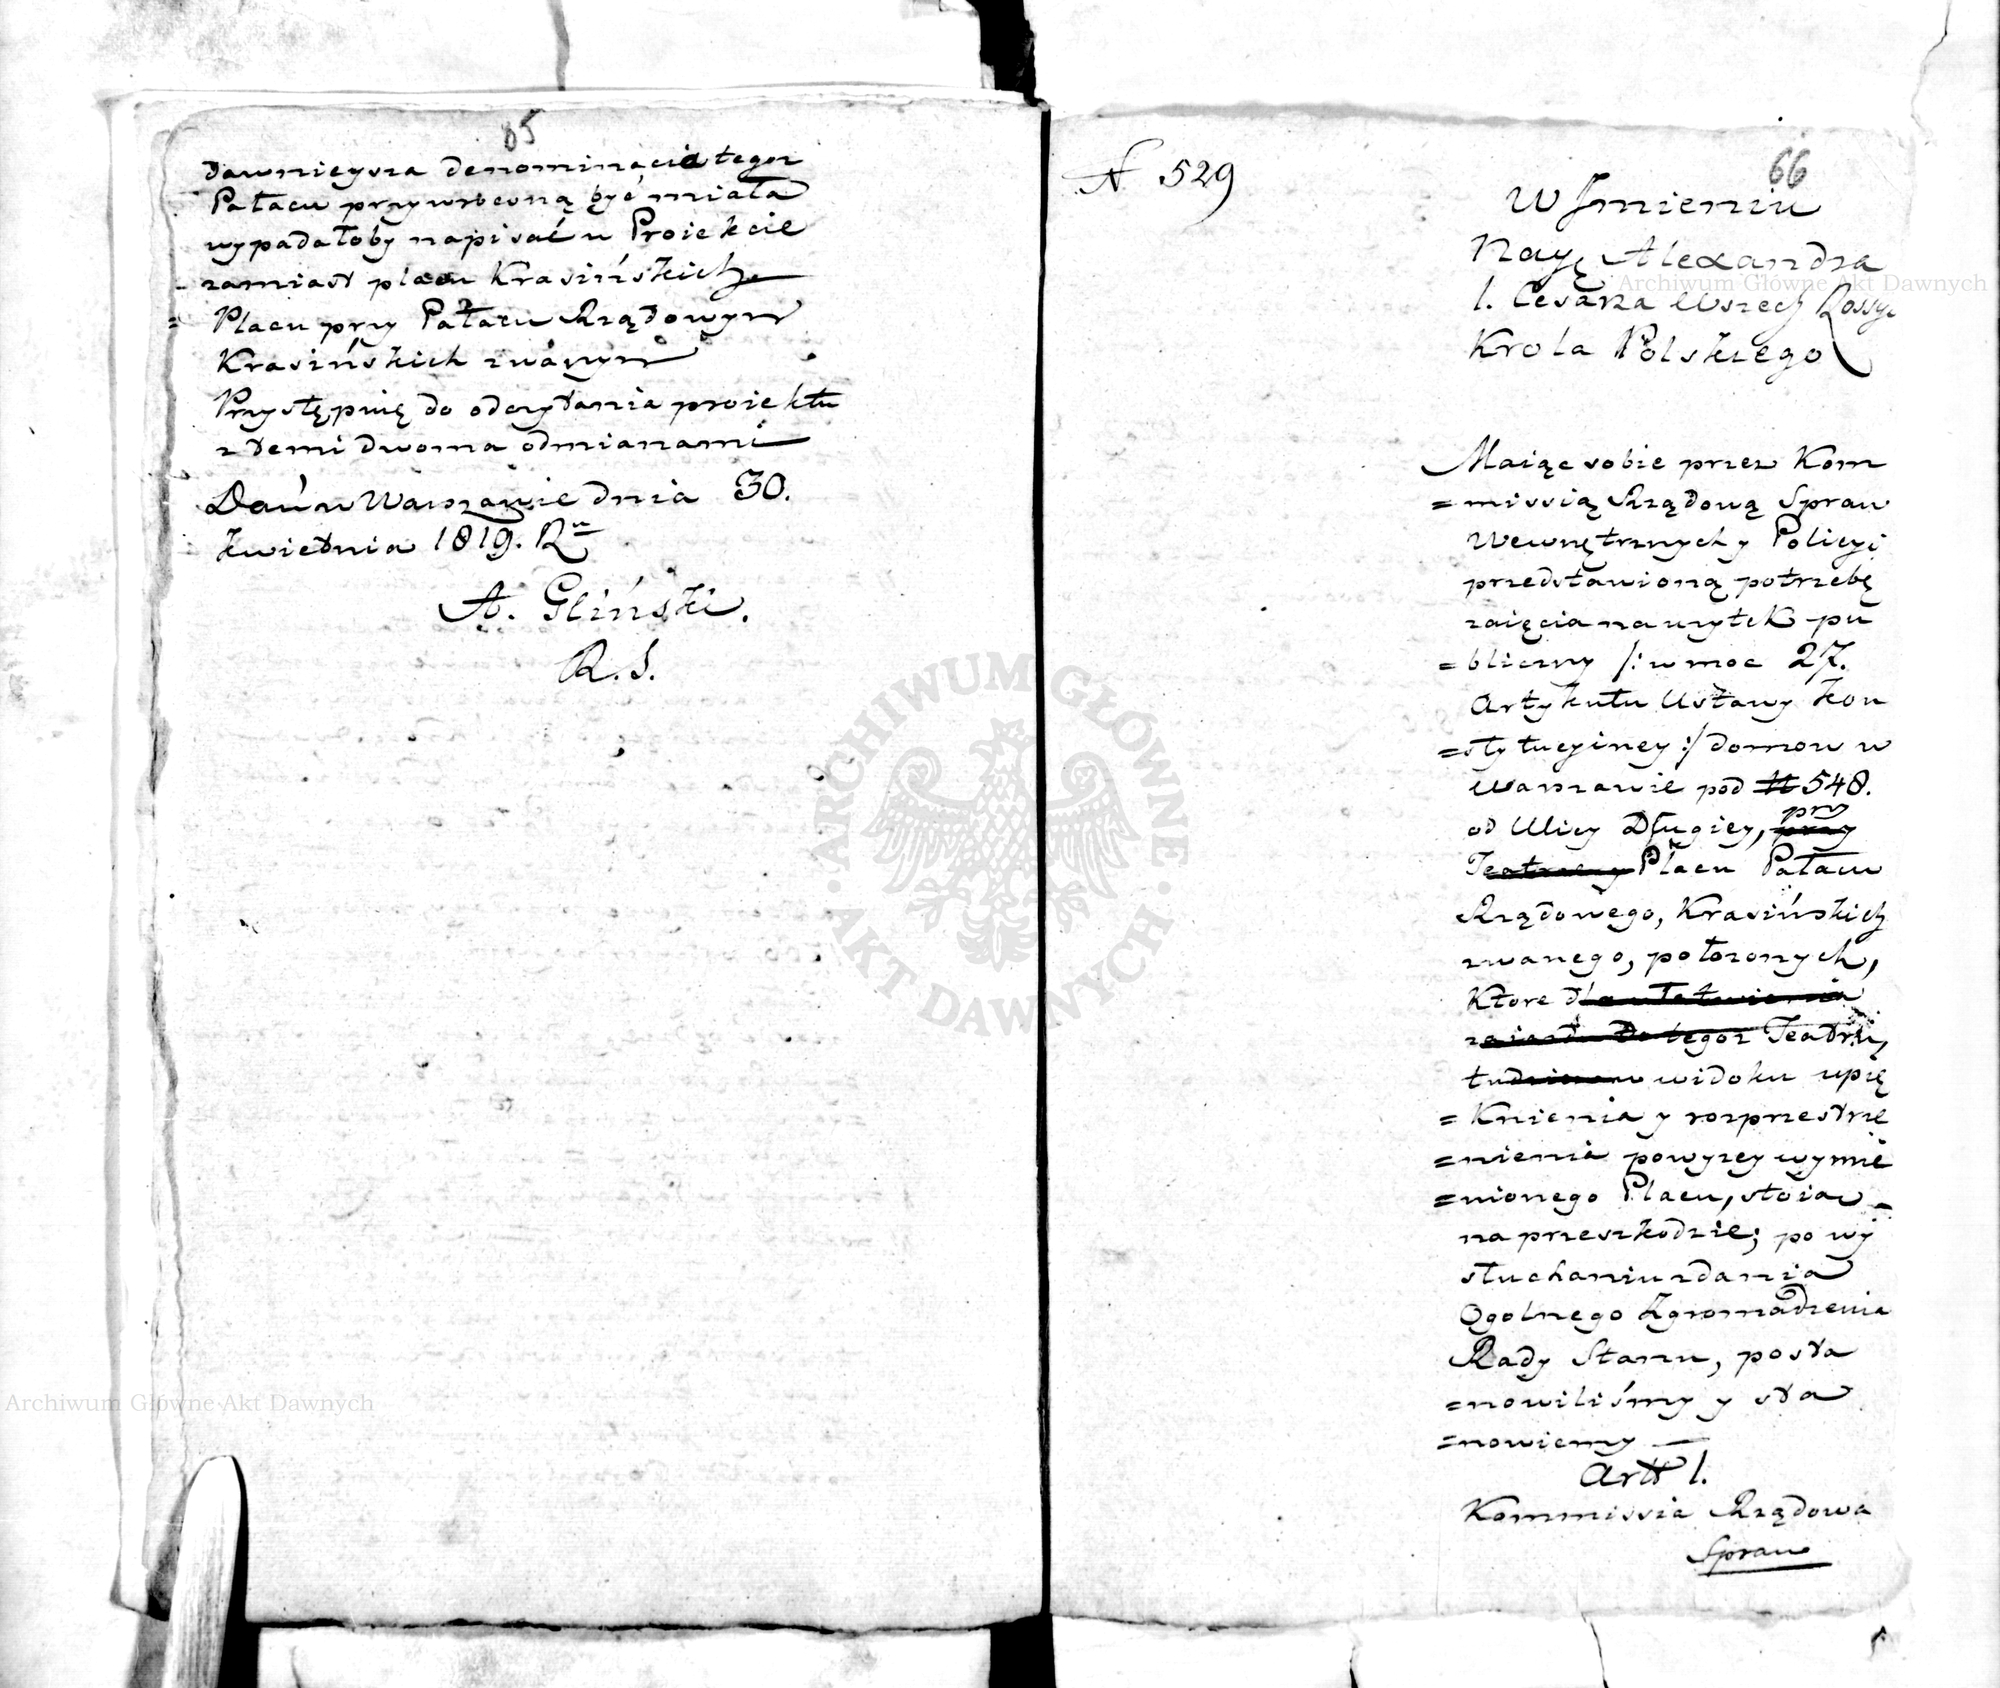 65
dawnieysza denominacia tegoż
Pałacu przywrócona być miała
wypadałoby napisać w Proiekcie
zamiast placu Krasińskich
= Placu przy Pałacu Rządowym
Krasińskich zwanym
Przystępuię do odczytania proiektu
z temi dwoma odmianami
Dań w Warszawie dnia 30.
kwietnia 1819. R
A. Gliński.
R. S.
N 529
66
W Imieniu
Nayę Alexandra
I. Cesarza Wszech Rossyi
Krola Polskiego
Maiąc sobie przez Kom
=missią Rządową Spraw
Wewnętrznych y Policyi
przedstawioną potrzebę
zaięcia na użytek pu
=bliczny /: w moc 27.
Artykułu Ustawy kon
=stytucyiney :/ domow w
Warszawie pod N 548.
od Ulicy Długiey, przy
przy
Teatralny Placu Pałacu
Rządowego, Krasińskich
zwanego, położonych,
Które dla ułatwienia
zaiazdu do tegoż Teatru,
tudzież w widoku upię
=Knienia y rozprzestrze
=nienia powyżey wymie
=nionego Placu, stoia
na przeszkodzie; po wy
słuchaniu zdania
Ogolnego Zgromadzenia
Rady Stanu, posta
=nowiliśmy y sta
=nowiemy —
Artt 1.
Kommissia Rządowa
Spraw
Archiwum Główne Akt Dawnych
Archiwum Główne Akt Dawnych
ARCHIWUM GŁÓWNE
· AKT DAWNYCH ·